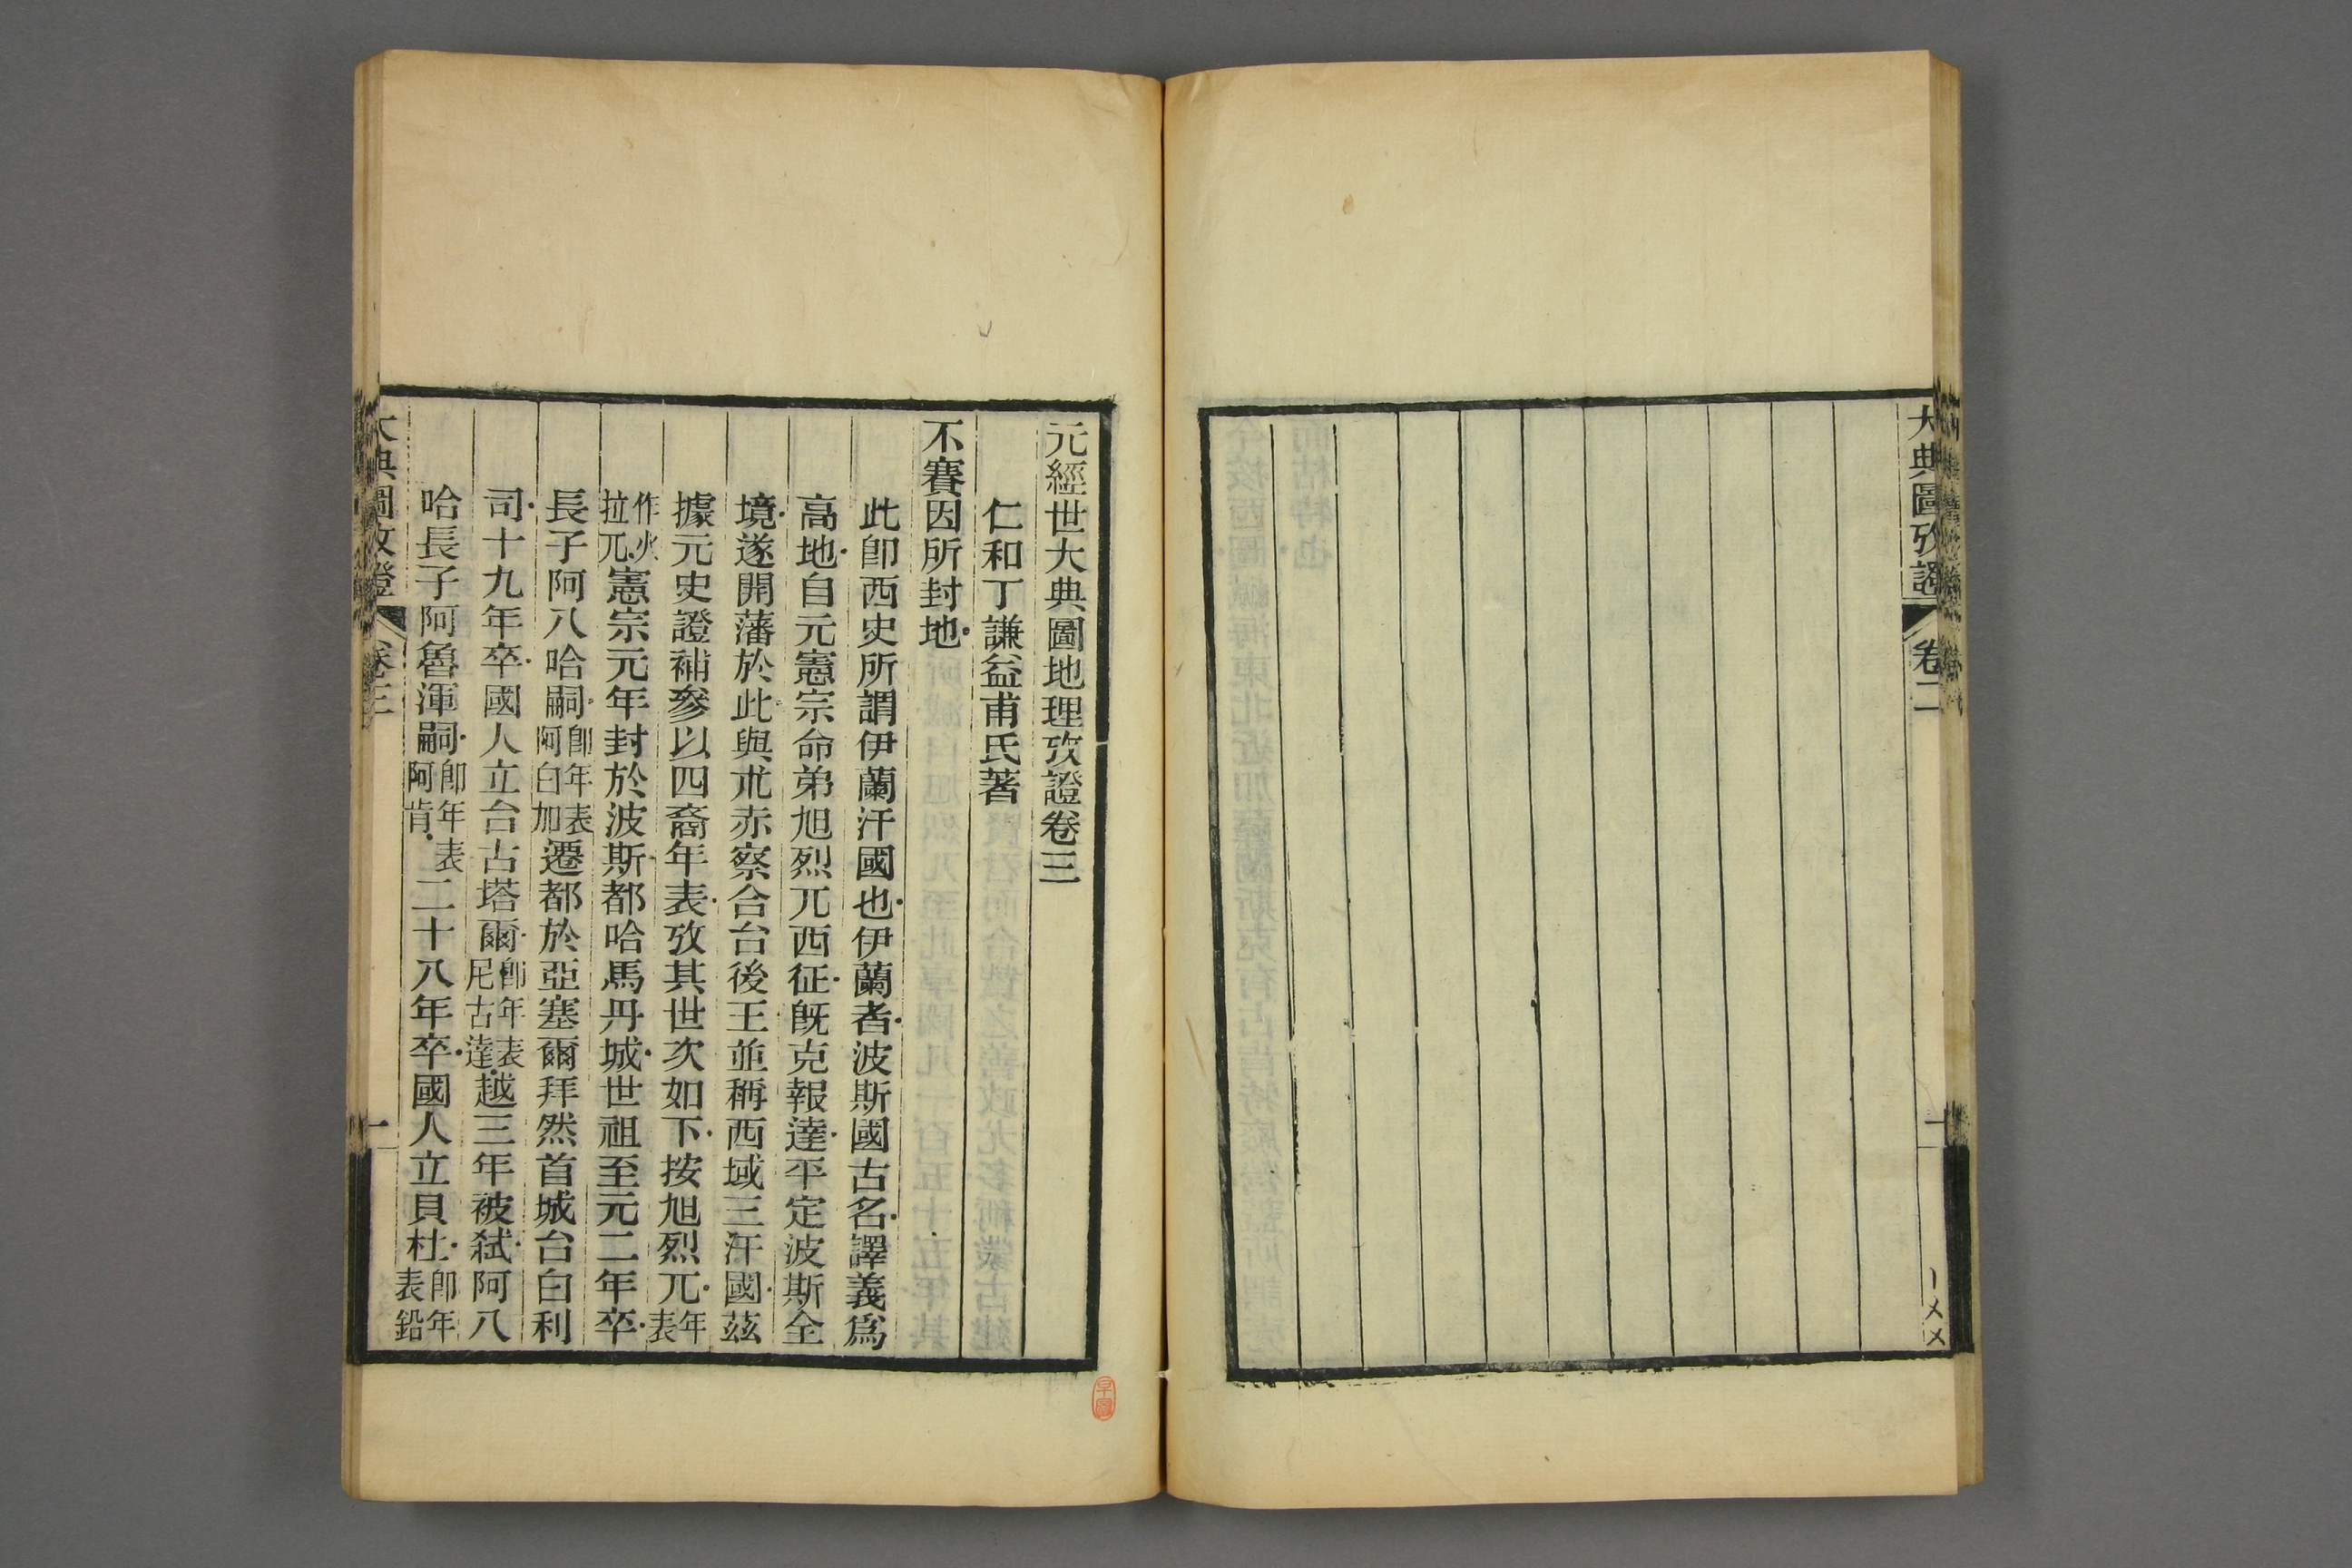 大典圖攷證 卷二
元經世大典圖地理攷證卷三
仁和丁謙益甫氏著
不賽因所封地
此卽西史所謂伊蘭汗國也伊蘭者波斯國古名譯義爲
高地自元憲宗命弟旭烈兀西征旣克報達平定波斯全
境遂開藩於此與朮赤察合台後王並稱西域三汗國茲
據元史證補參以四裔年表攷其世次如下按旭烈兀年表
作火拉兀憲宗元年封於波斯都哈馬丹城世祖至元二年卒
長子阿八哈嗣卽年表阿白加遷都於亞塞爾拜然首城台白利
司十九年卒國人立台古塔爾卽年表尼古達越三年被弒阿八
哈長子阿魯渾嗣卽年表阿肯二十八年卒國人立貝杜卽年表鉛
大典圖攷證 卷三 一